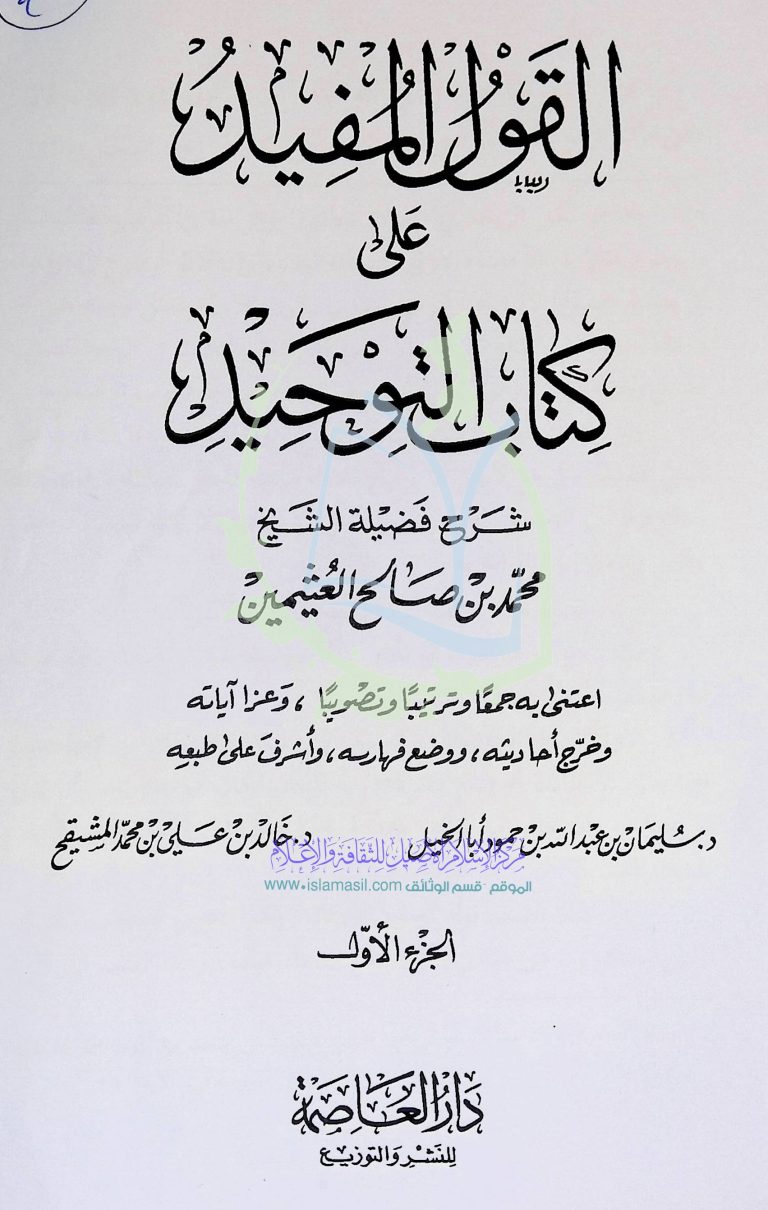 القَوْلُ المُفِيدُ
عَلَى
كِتَابِ التَّوْحِيدِ
شَرْح فَضِيْلة الشَّيخ
محمّد بن صَالح العُثيمين
اعتنى به جمعًا وترتيبًا وتصْويبًا ، وَعزا آياته
وخرّج أحاديثه ، ووضع فهارسه ، وأشرفَ على طبعِه
د. سُليمان بن عبد الله بن حمود أبا الخيل د. خَالد بن عَلي بن محمّد المشيقح
مركز الإسلام الأصيل للثقافة والإعلام
الموقع - قسم الوثائق www.islamasil.com
الجزء الأوّل
دَارُ العَاصِمَة
للنَشْرِ وَالتَوزيْع